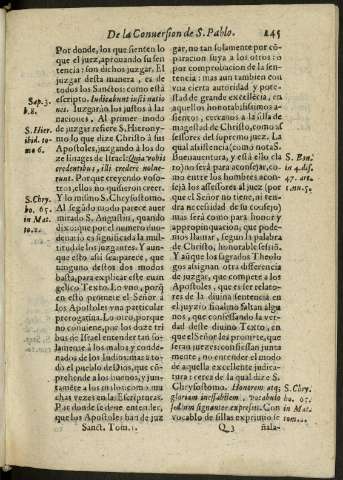 De la Conuersion de S. Pablo. 245
Por donde, los que sienten lo
que el juez, aprouando su sen
tencia: son dichos juzgar. El
juzgar desta manera, es de
todos los Sanctos: como està
escripto. Iudicabunt iusti natio
nes. Iuzgaràn los justos à las
naciones. Al primer modo
de juzgar refiere S. Hierony-
mo lo que dize Christo à sus
Apostoles, juzgando à los do
ze linages de Israel: Quia vobis
credentibus, illi credere nolue-
runt. Porque creyendo voso-
tros, ellos no quisieron creer.
Y lo mismo S. Chrysostomo.
Al segūdo modo parece auer
mirado S. Augustin, quando
dixo: que por el numero duo-
denario es significada la mul
titud de los juzgantes. Y aun-
que esto assi sea: parece, que
ninguno destos dos modos
basta, para explicar este euan
gelico Texto. Lo vno, porq̃
en esto promete el Señor à
los Apostoles vna particular
prerogatiua. Lo otro, porque
no conuiene, por los doze tri
bus de Israel entender tan so-
lamente à los malos y conde-
nados de los Iudios: mas a to-
do el pueblo de Dios, que cō-
prehende à los buenos, y jun-
tamēte à los malos, como mu
chas vezes en las Escripturas.
Por donde se deue entender,
que los Apostoles han de juz
Sanct. Tom. 1.
Sap. 3.
b. 8.
S. Hier.
ibid. to-
mo 6.
S. Chry.
ho. 65.
in Mat.
to. 2.
gar, no tan solamente por cō-
paracion suya à los otros: o
por comprobacion de la sen-
tencia: mas aun tambien con
vna cierta autoridad y pote-
stad de grande excellēcia, en
aquellos honorabilissimos as-
sientos, cercanos a la silla de
magestad de Christo, como as
sessores del supremo juez. La
qual assistencia (como nota S.
Buenauentura, y està ello cla
ro) no serà para aconsejar, co-
mo entre los hombres aconse
jā los assessores al juez (por
que el Señor no tiene, ni ten-
drà necessidad de su consejo)
mas serà como para honor y
appropinquacion; que pode-
mos llamar, segun la palabra
de Christo, honorable session.
Y aūque los sagrados Theolo
gos assignan otra differencia
de juzgar, que compete à los
Apostoles, que es ser relato-
res de la diuina sentencia en
el juyzio final: no faltan algu
nos, que confessando la ver-
dad deste diuino Texto, en
que el Señor les promete, que
seran juezes: confiessan junta
mente, no entender el modo
de aquella excellente judica-
tura: cerca de la qual dize S.
Chrysostomo. Honorem atq̃;
gloriam ineffabilem, vocabulo
sessionum signanter expressit. Con
vocablo de sillas exprimio se
Q 3 ñala-
S. Bon.
in 4. dis.
47. art.
1. nu. 50
S. Chry.
ho. 65.
in Mat.
tom. 2.